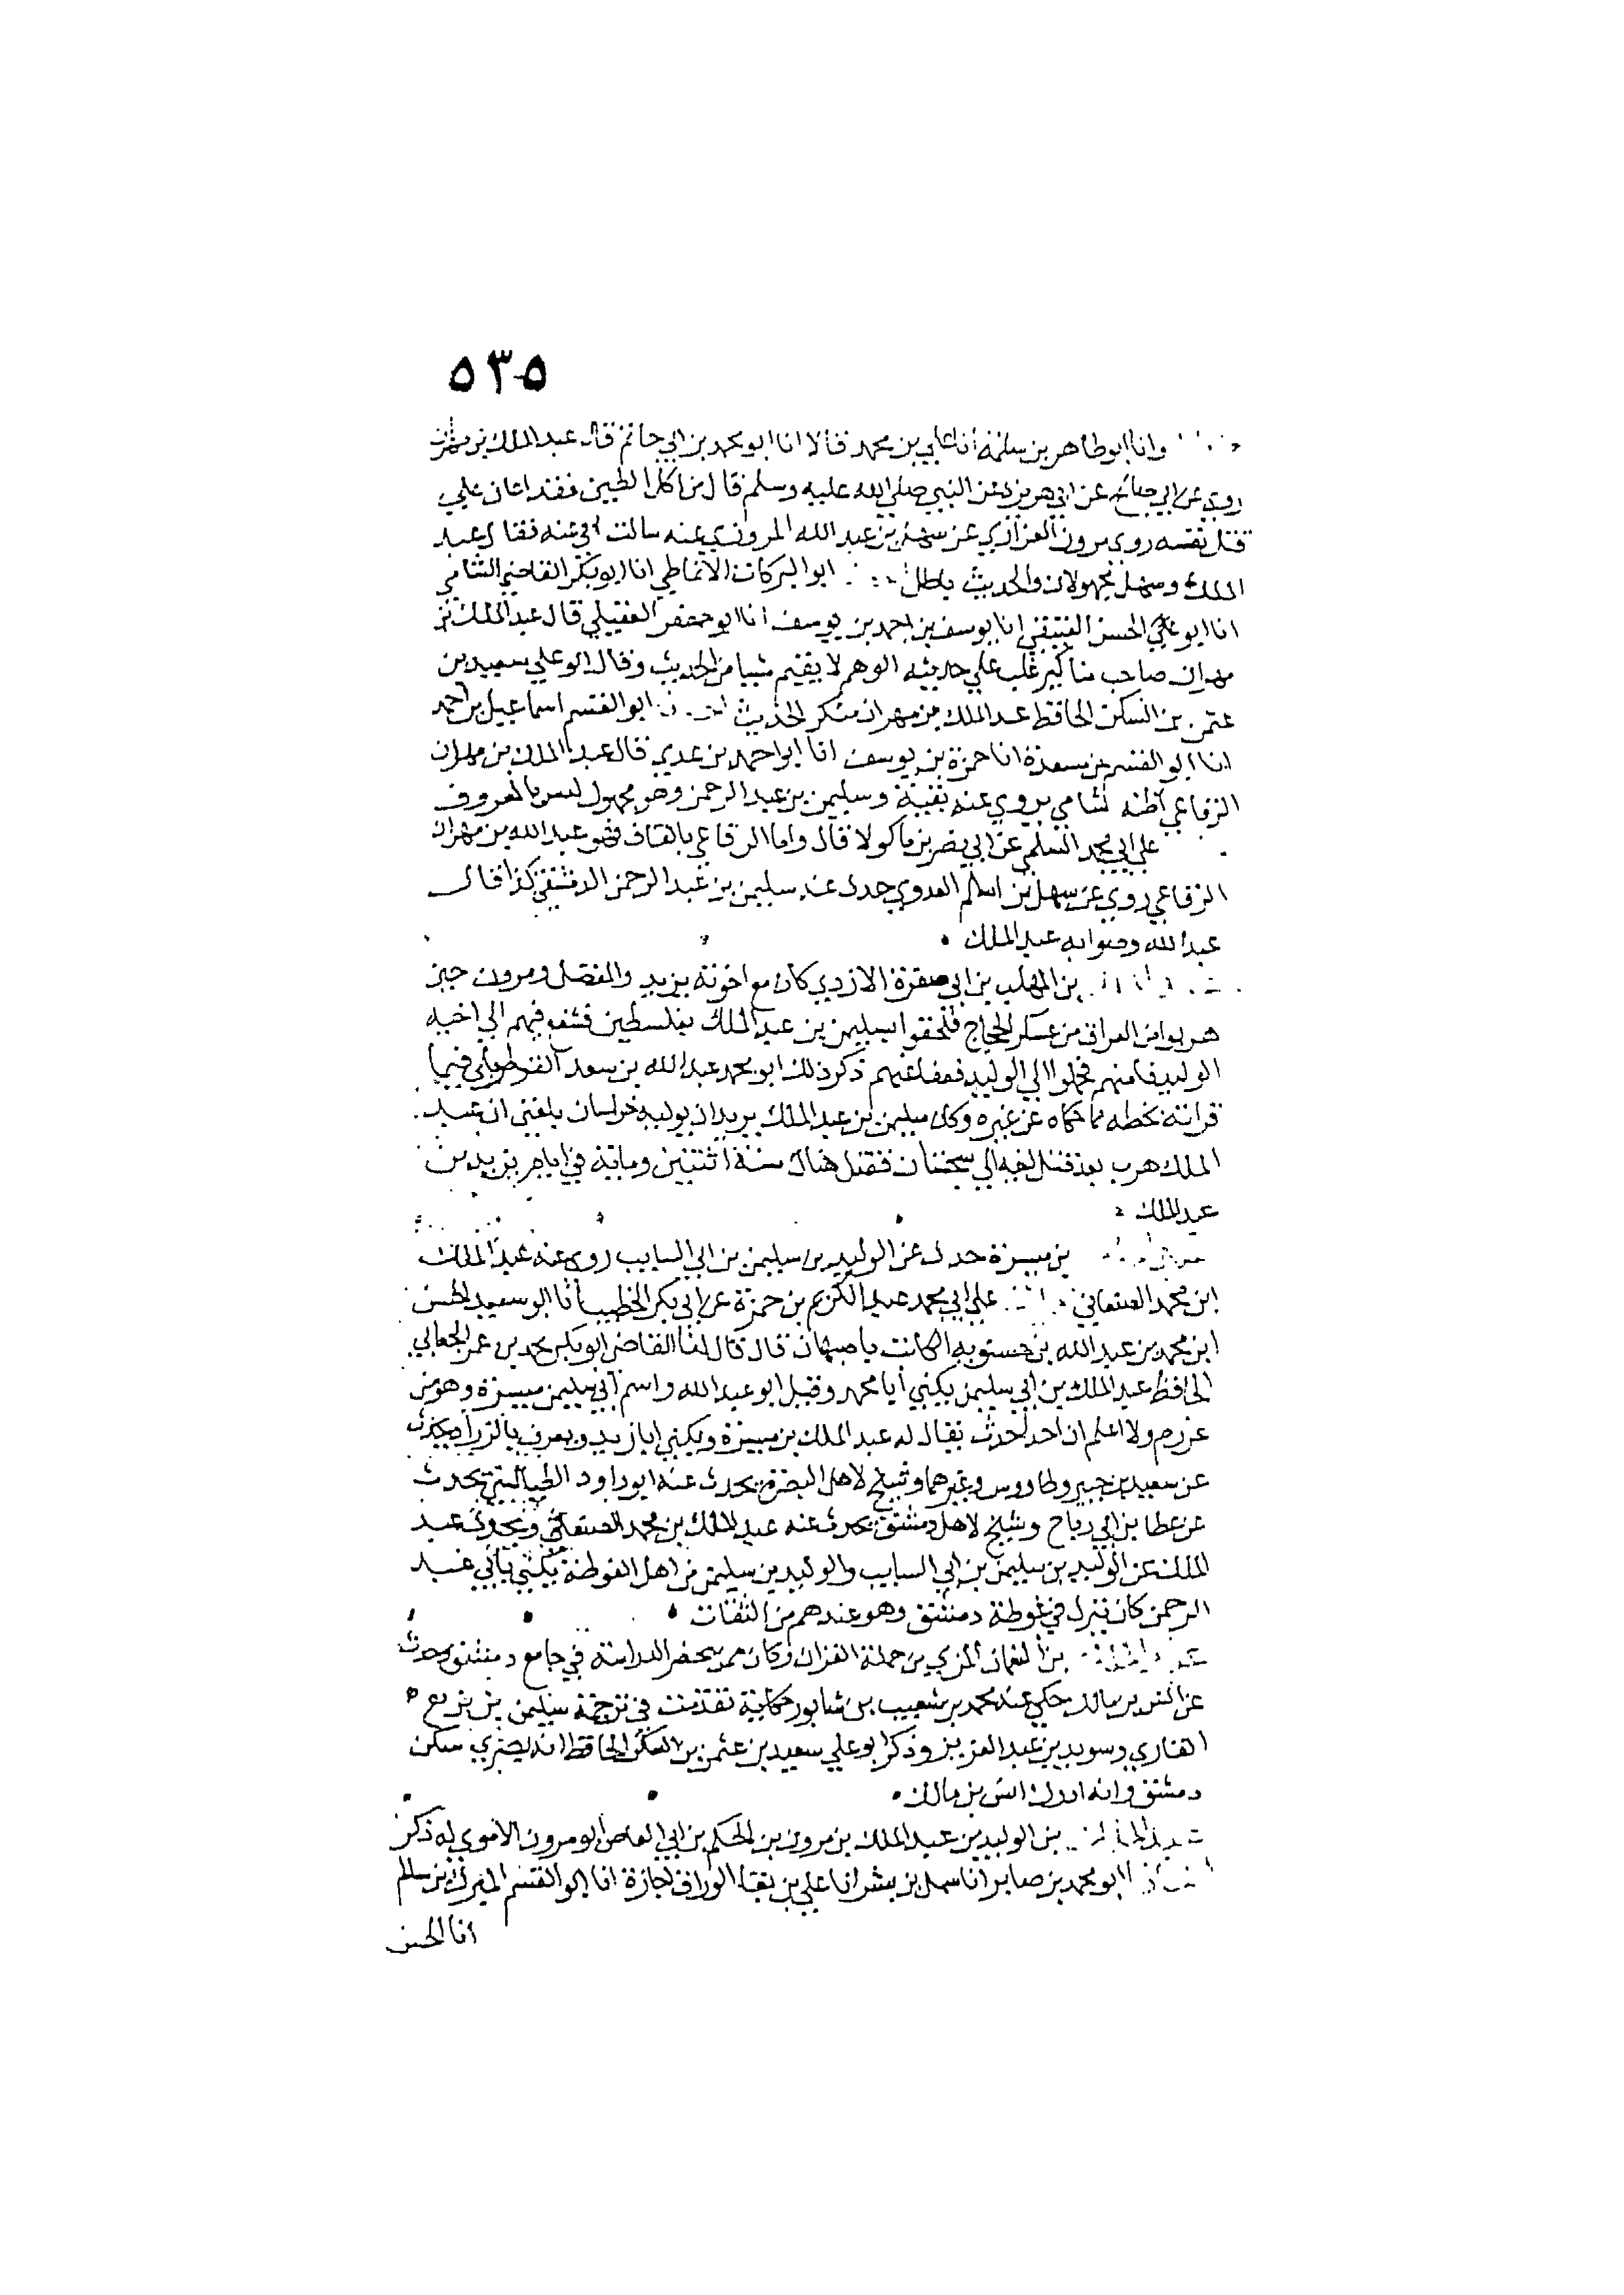 ٥٣٥
وانا ابو طاهر بن سلمة انا علي بن محمد قالا انا ابو محمد بن ابي حاتم قال عبد الملك بن مهران
روى عن ابي صالح عن ابي هريرة عن النبي صلى الله عليه وسلم قال من اكل الطين فقد اعان على
قتل نفسه روى مرون الفزاري عن سهل بن عبد الله المروزي عنه سالت ابي عنه فقال عبد
الملك وسهل مجهولان والحديث باطل ابو البركات الانماطي انا ابو بكر القاضي الشامي
انا ابو الحسن العتيقي انا يوسف بن احمد بن يوسف انا ابو جعفر العقيلي قال عبد الملك بن
مهران صاحب مناكير غلب على حديثه الوهم لا يقيم شيا من الحديث وقال ابو علي سعيد بن
عثمن بن السكن الحافظ عبد الملك بن مهران منكر الحديث ابو القسم اسماعيل بن احمد
انا ابو القسم بن مسعدة انا حمزة بن يوسف انا ابو احمد بن عدي قال عبد الملك بن مهران
الرفاعي اظنه شامي يروي عنه بقية وسليمن بن عبد الرحمن وهو مجهول ليس بالمعروف
على ابي محمد السلمي عن ابي نصر بن ماكولا قال واما الرقاعي بالقاف فهو عبد الله بن مهران
الرقاعي روى عن سهل بن اسلم العدوي حدث عنه سليمن بن عبد الرحمن الدمشقي كذا قال
عبد الله وصوابه عبد الملك
بن المهلب بن ابي صفرة الازدي كان مع اخوته يزيد والمفضل ومرون حين
هربوا من العراق من عسكر الحجاج فلحقوا بسليمن بن عبد الملك بفلسطين فشفع فيهم الى اخيه
الوليد فامنهم فحملوا الى الوليد فعفا عنهم ذكر ذلك ابو محمد عبد الله بن سعد القطربلي فيما
قراته بخطه مما حكاه عن غيره وكان سليمن بن عبد الملك يريد ان يوليه خراسان بلغني ان عبد
الملك هرب بعد قتل اخيه الى سجستان فقتل هناك سنة اثنتين وماية في ايام يزيد بن
عبد الملك
بن ميسرة حدث عن الوليد بن سليمن بن ابي السايب روى عنه عبد الملك
ابن محمد الصنعاني على ابي محمد عبد الكريم بن حمزة عن ابي بكر الخطيب انا ابو سعيد الحسن
ابن محمد بن عبد الله بن حسنويه الكاتب باصبهان قال قال لنا القاضي ابو بكر محمد بن عمر الجعابي
الحافظ عبد الملك بن ابي سليمن يكنى ابا محمد وقيل ابو عبد الله واسم ابي سليمن ميسرة وهو من
عرزم ولا اعلم ان احد حدث يقال له عبد الملك بن ميسرة ويكنى ابا زيد ويعرف بالزراد يحدث
عن سعيد بن جبير وطاووس وغيرهما وشيخ لاهل البصرة يحدث عنه ابو داود الطيالسي يحدث
عن عطا بن ابي رباح وشيخ لاهل دمشق يحدث عنه عبد الملك بن محمد الصنعاني ويحدث عبد
الملك عن الوليد بن سليمن بن ابي السايب والوليد بن سليمن من اهل الغوطة يكنى بابي عبد
الرحمن كان ينزل في غوطة دمشق وهو عندهم من الثقات
بن النعمان المزي من حملة القران وكان ممن يحضر الدراسة في جامع دمشق وحدث
عن انس بن مالك حكى عنه محمد بن شعيب بن شابور حكاية تقدمت في ترجمة سليمن بن بزيع
القاري وسويد بن عبد العزيز وذكر ابو علي سعيد بن عثمن بن السكن الحافظ انه بصري سكن
دمشق وانه ادرك انس بن مالك
بن الوليد بن عبد الملك بن مرون بن الحكم بن ابي العاص ابو مرون الاموي له ذكر
ابو محمد بن صابر انا سهل بن بشر انا علي بن بقا الوراق اجازة انا ابو القسم المبرك بن سالم
انا الحسن